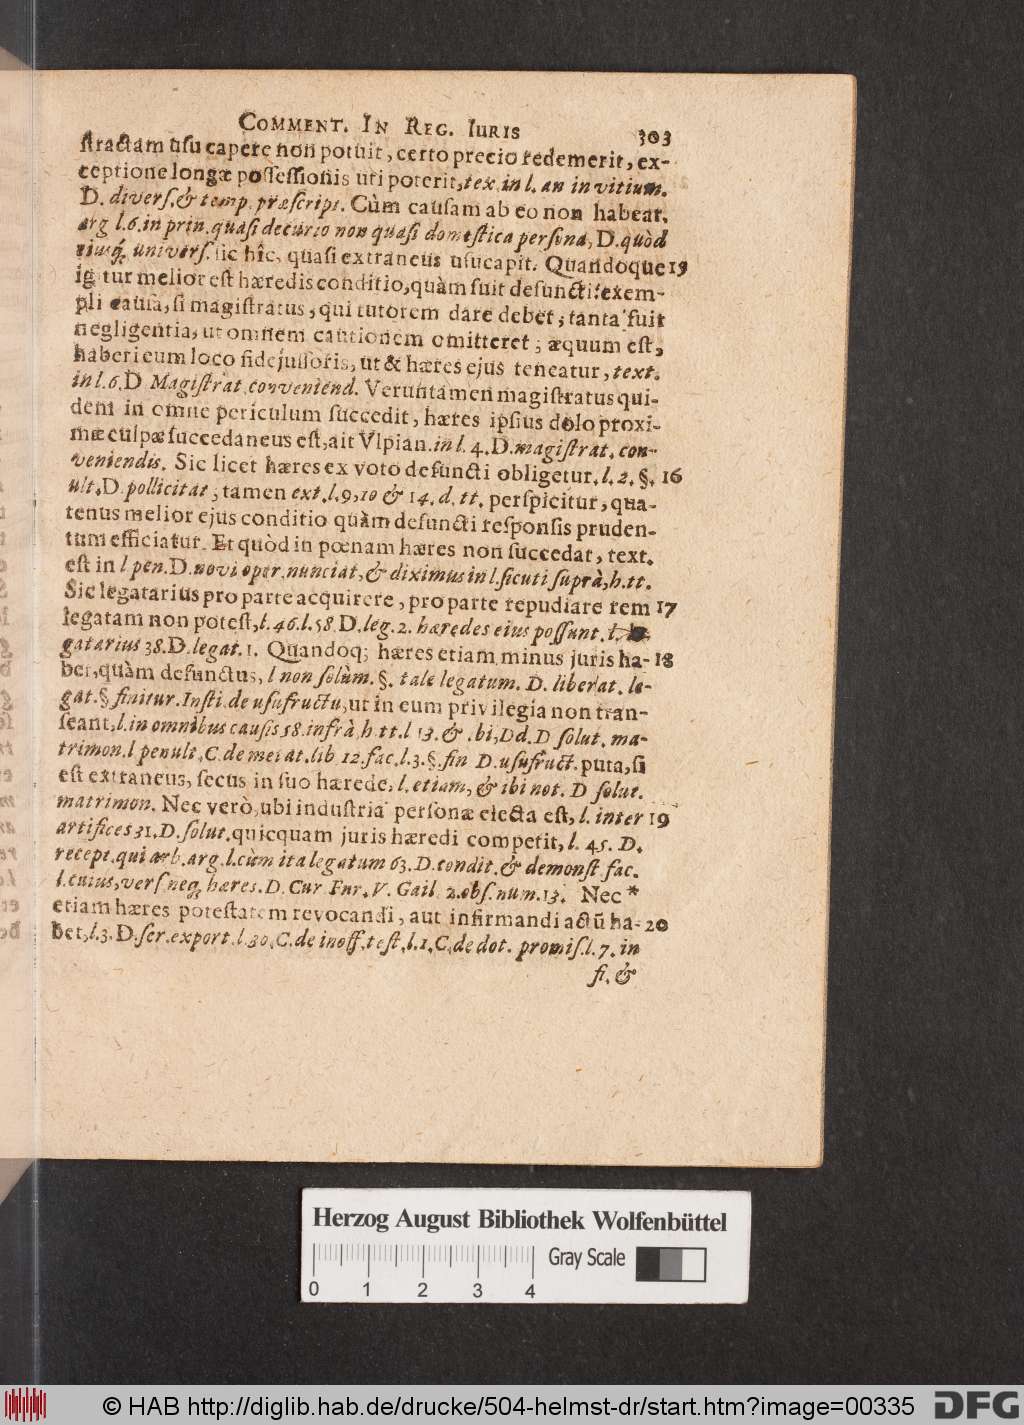 COMMENT. IN REG. IURIS 303
stractam usu capere non potuit, certo precio redemerit, ex-
ceptione longæ possessionis uti poterit, tex. in l. an in vitium.
D. divers. & temp. præscript. Cùm causam ab eo non habeat.
arg l. 6. in prin. quasi decurio non quasi domestica persona, D. quòd
univers. sic hîc, quasi extraneus usucapit. Quandoque 15
igitur melior est hæredis conditio, quàm fuit defuncti: exem-
pli causa, si magistratus, qui tutorem dare debet, tanta fuit
negligentia, ut omnem cautionem omitteret; æquum est,
haberi eum loco fidejussoris, ut & hæres ejus teneatur, text.
in l. 6. D Magistrat. conveniend. Veruntamen magistratus qui-
dem in omne periculum succedit, hæres ipsius dolo proxi-
mæ culpæ succedaneus est, ait Vlpian. in l. 4. D. magistrat. con-
veniendis. Sic licet hæres ex voto defuncti obligetur. l. 2. §. 16
ult. D. pollicitat; tamen ext. l. 9, 10 & 14. d. tt. perspicitur, qua-
tenus melior ejus conditio quàm defuncti responsis pruden-
tum efficiatur. Et quòd in pœnam hæres non succedat, text.
est in l pen. D. novi oper. nunciat, & diximus in l. sicuti suprà, h. tt.
Sic legatarius pro parte acquirere, pro parte repudiare rem 17
legatam non potest, l. 46. l. 58. D. leg. 2. hæredes eius possunt. l. le-
gatarius 38. D. legat. 1. Quandoq; hæres etiam minus juris ha- 18
bet, quàm defunctus, l non solùm. §. tale legatum. D. liberat. le-
gat. § finitur. Insti. de usufructu, ut in eum privilegia non tran-
seant, l. in omnibus causis 58. infrà h tt. l 13. & ibi, Dd. D solut. ma-
trimon. l penult. C. de metat. lib 12. fac. l. 3. §. fin D. usufruct. puta, si
est extraneus, secus in suo hærede. l. etiam, & ibi not. D solut.
matrimon. Nec verò, ubi industria personæ electa est, l. inter 19
artifices 31. D. solut. quicquam juris hæredi competit, l. 45. D.
recept. qui arb. arg. l. cùm ita legatum 63. D. condit. & demonst fac.
l. cuius, vers. neq; hæres. D. Cur Fur. V. Gail. 2. obs. num. 13. Nec *
etiam hæres potestatem revocandi, aut infirmandi actū ha- 20
bet, l. 3. D. ser. export. l. 30. C. de inoff. test. l. 1. C. de dot. promis. l. 7. in
fi. &
Herzog August Bibliothek Wolfenbüttel
Gray Scale
0 1 2 3 4
© HAB http://diglib.hab.de/drucke/504-helmst-dr/start.htm?image=00335
DFG